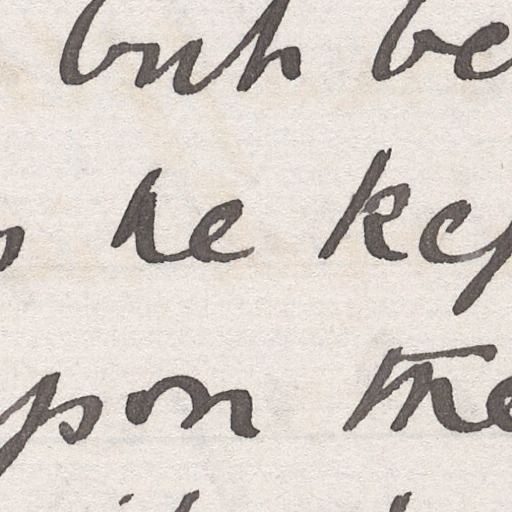 but be
he kep
upon the